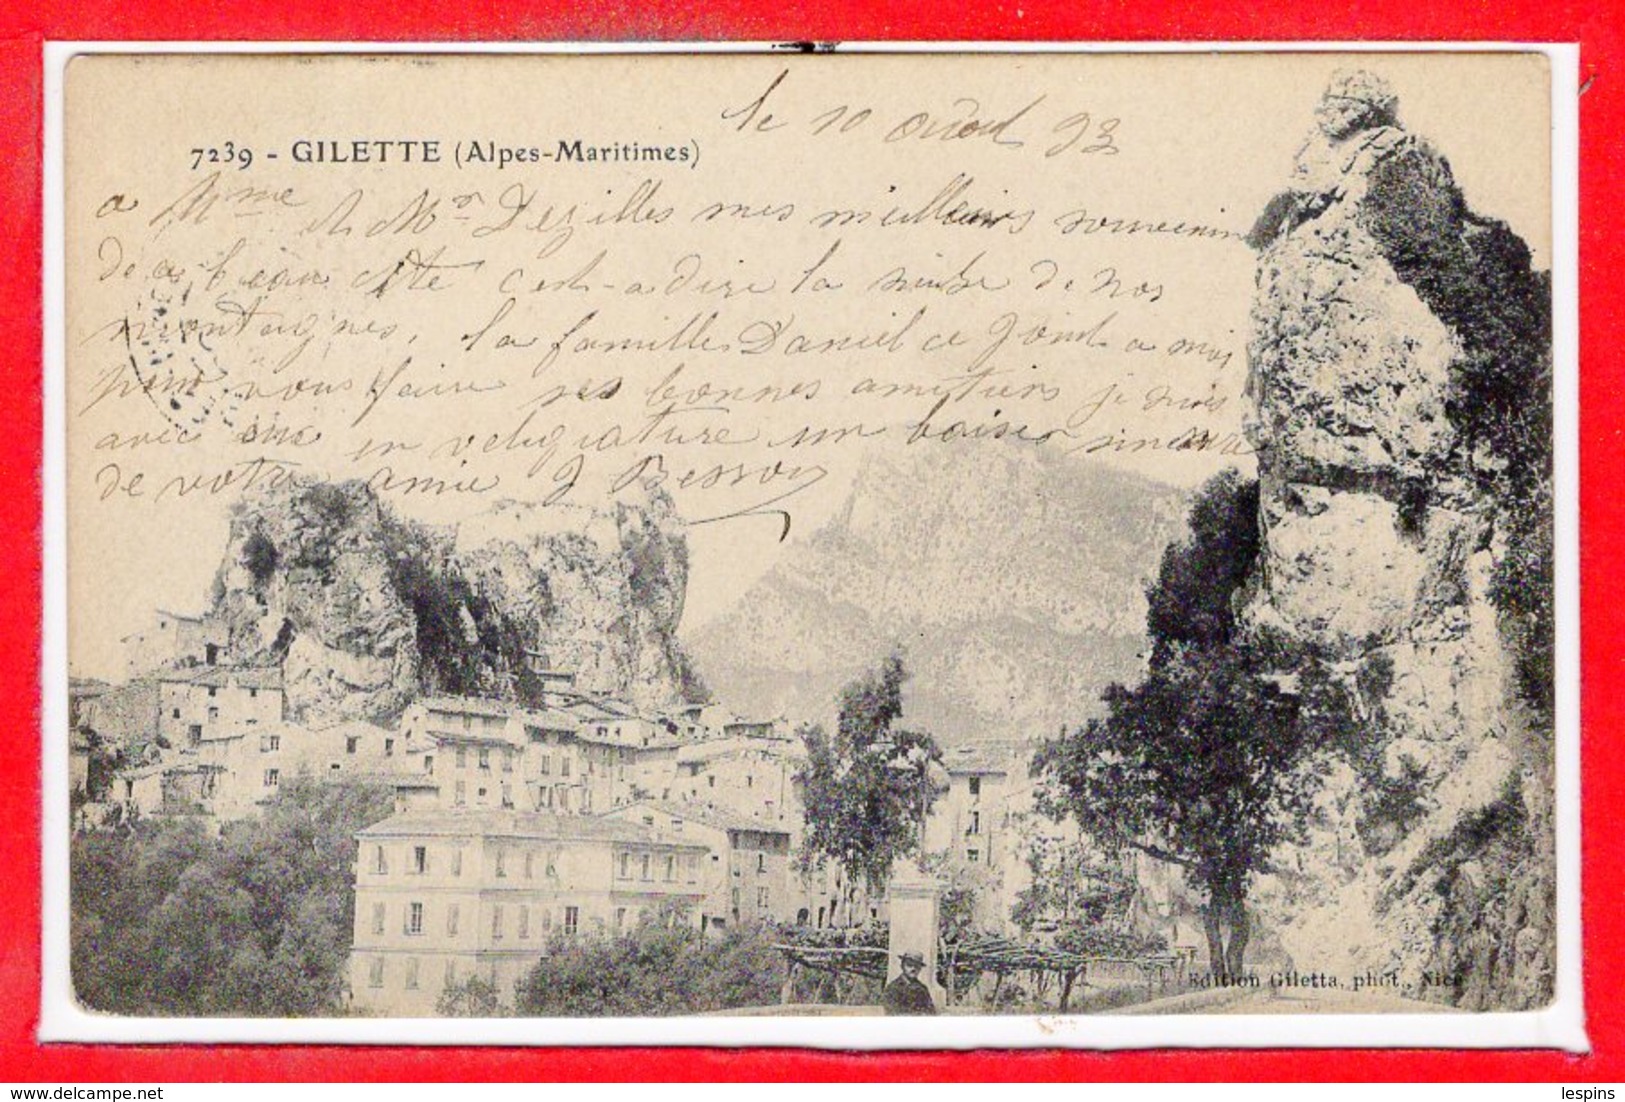 le 10 août 93
7239 - GILETTE (Alpes-Maritimes)
a Mme et Mr Dezilles mes meilleurs souvenirs
de ce beau site c'est-a dire la de nos
montagnes, la famille Daniel ce joint a moi
pour vous faire ses bonnes amitiers je suis
avec eux en veligiature un baiser sincere
de votre amie J Besson
Edition Giletta, phot., Nice
lespins